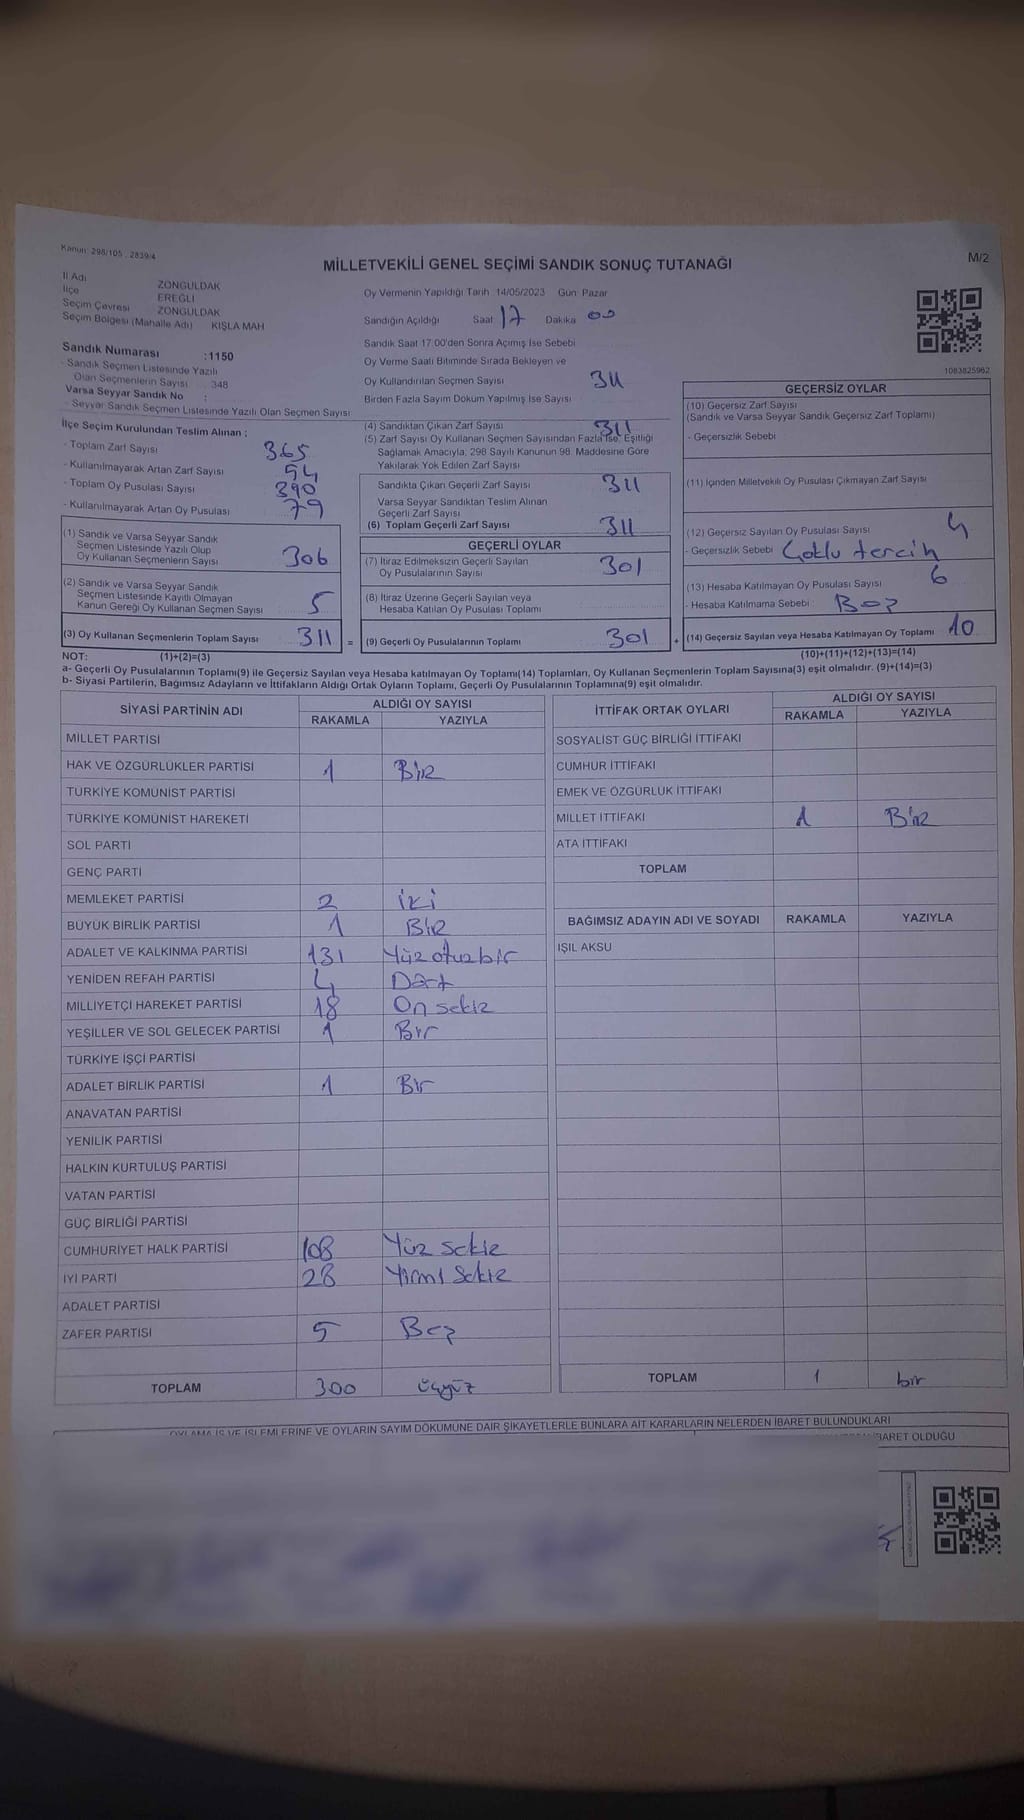 Kanun: 298/105 , 2839/4
M/2
MİLLETVEKİLİ GENEL SEÇİMİ SANDIK SONUÇ TUTANAĞI
İl Adı ZONGULDAK
İlçe EREĞLİ
Seçim Çevresi ZONGULDAK
Seçim Bölgesi (Mahalle Adı) KIŞLA MAH
Sandık Numarası :1150
- Sandık Seçmen Listesinde Yazılı
Olan Seçmenlerin Sayısı : 348
Varsa Seyyar Sandık No :
- Seyyar Sandık Seçmen Listesinde Yazılı Olan Seçmen Sayısı
İlçe Seçim Kurulundan Teslim Alınan :
- Toplam Zarf Sayısı 365
- Kullanılmayarak Artan Zarf Sayısı 54
- Toplam Oy Pusulası Sayısı 390
- Kullanılmayarak Artan Oy Pusulası 79
(1) Sandık ve Varsa Seyyar Sandık
Seçmen Listesinde Yazılı Olup
Oy Kullanan Seçmenlerin Sayısı 306
(2) Sandık ve Varsa Seyyar Sandık
Seçmen Listesinde Kayıtlı Olmayan
Kanun Gereği Oy Kullanan Seçmen Sayısı 5
(3) Oy Kullanan Seçmenlerin Toplam Sayısı 311 =
Oy Vermenin Yapıldığı Tarih :14/05/2023 Gün: Pazar
Sandığın Açıldığı Saat 17 Dakika 00
Sandık Saat 17:00'den Sonra Açımış İse Sebebi
Oy Verme Saati Bitiminde Sırada Bekleyen ve
Oy Kullandırılan Seçmen Sayısı 311
Birden Fazla Sayım Döküm Yapılmış İse Sayısı
(4) Sandıktan Çıkan Zarf Sayısı 311
(5) Zarf Sayısı Oy Kullanan Seçmen Sayısından Fazla İse, Eşitliği
Sağlamak Amacıyla, 298 Sayılı Kanunun 98. Maddesine Göre
Yakılarak Yok Edilen Zarf Sayısı
Sandıkta Çıkan Geçerli Zarf Sayısı 311
Varsa Seyyar Sandıktan Teslim Alınan
Geçerli Zarf Sayısı
(6) Toplam Geçerli Zarf Sayısı 311
GEÇERLİ OYLAR
(7) İtiraz Edilmeksizin Geçerli Sayılan
Oy Pusulalarının Sayısı 301
(8) İtiraz Üzerine Geçerli Sayılan veya
Hesaba Katılan Oy Pusulası Toplamı
(9) Geçerli Oy Pusulalarının Toplamı 301 +
1083825962
GEÇERSİZ OYLAR
(10) Geçersiz Zarf Sayısı
(Sandık ve Varsa Seyyar Sandık Geçersiz Zarf Toplamı)
- Geçersizlik Sebebi
(11) İçinden Milletvekili Oy Pusulası Çıkmayan Zarf Sayısı
(12) Geçersiz Sayılan Oy Pusulası Sayısı 4
- Geçersizlik Sebebi Çoklu tercih
(13) Hesaba Katılmayan Oy Pusulası Sayısı 6
- Hesaba Katılmama Sebebi : Boş
(14) Geçersiz Sayılan veya Hesaba Katılmayan Oy Toplamı 10
NOT: (1)+(2)=(3) (10)+(11)+(12)+(13)=(14)
a- Geçerli Oy Pusulalarının Toplamı(9) ile Geçersiz Sayılan veya Hesaba katılmayan Oy Toplamı(14) Toplamları, Oy Kullanan Seçmenlerin Toplam Sayısına(3) eşit olmalıdır. (9)+(14)=(3)
b- Siyasi Partilerin, Bağımsız Adayların ve İttifakların Aldığı Ortak Oyların Toplamı, Geçerli Oy Pusulalarının Toplamına(9) eşit olmalıdır.
SİYASİ PARTİNİN ADI ALDIĞI OY SAYISI
RAKAMLA YAZIYLA
MİLLET PARTİSİ
HAK VE ÖZGÜRLÜKLER PARTİSİ 1 Bir
TÜRKİYE KOMÜNİST PARTİSİ
TÜRKİYE KOMÜNİST HAREKETİ
SOL PARTİ
GENÇ PARTİ
MEMLEKET PARTİSİ 2 iki
BÜYÜK BİRLİK PARTİSİ 1 Bir
ADALET VE KALKINMA PARTİSİ 131 Yüz otuz bir
YENİDEN REFAH PARTİSİ 4 Dört
MİLLİYETÇİ HAREKET PARTİSİ 18 On sekiz
YEŞİLLER VE SOL GELECEK PARTİSİ 1 Bir
TÜRKİYE İŞÇİ PARTİSİ
ADALET BİRLİK PARTİSİ 1 Bir
ANAVATAN PARTİSİ
YENİLİK PARTİSİ
HALKIN KURTULUŞ PARTİSİ
VATAN PARTİSİ
GÜÇ BİRLİĞİ PARTİSİ
CUMHURİYET HALK PARTİSİ 108 Yüz sekiz
İYİ PARTİ 28 Yirmi Sekiz
ADALET PARTİSİ
ZAFER PARTİSİ 5 Beş
TOPLAM 300 üçyüz
İTTİFAK ORTAK OYLARI ALDIĞI OY SAYISI
RAKAMLA YAZIYLA
SOSYALİST GÜÇ BİRLİĞİ İTTİFAKI
CUMHUR İTTİFAKI
EMEK VE ÖZGÜRLÜK İTTİFAKI
MİLLET İTTİFAKI 1 Bir
ATA İTTİFAKI
TOPLAM
BAĞIMSIZ ADAYIN ADI VE SOYADI RAKAMLA YAZIYLA
IŞIL AKSU
TOPLAM 1 bir
OYLAMA İŞ VE İŞLEMLERİNE VE OYLARIN SAYIM DÖKÜMÜNE DAİR ŞİKAYETLERLE BUNLARA AİT KARARLARIN NELERDEN İBARET BULUNDUKLARI
İBARET OLDUĞU